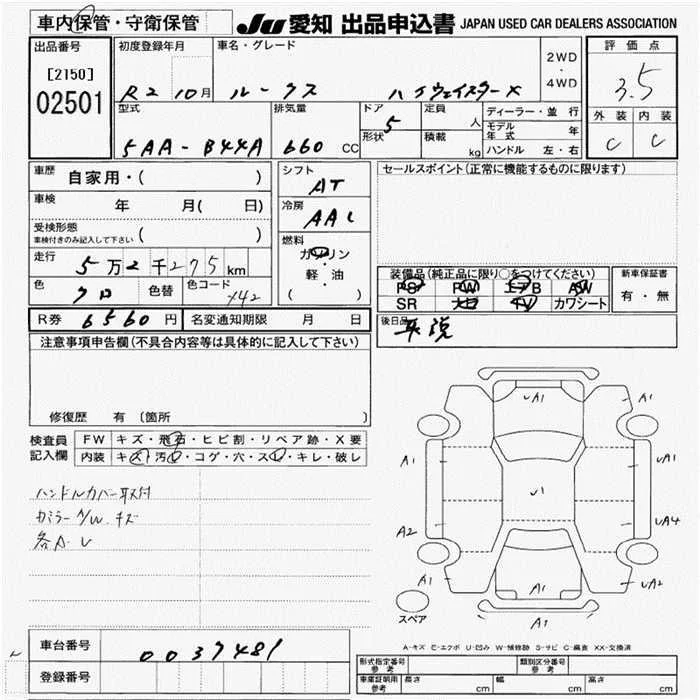 車内保管・守衛保管 JU 愛知 出品申込書 JAPAN USED CAR DEALERS ASSOCIATION
出品番号 初度登録年月 車名・グレード 2WD・4WD 評価点
[2150] 02501 R2 10月 ルークス ハイウェイスターX 3.5
型式 排気量 ドア 定員 人 ディーラー・並行 外装 内装
形状 積載 kg モデル年式 年
5AA-B44A 660 CC 5 ハンドル 左・右 C C
車歴 自家用・( ) シフト AT セールスポイント(正常に機能するものに限ります)
車検 年 月( 日) 冷房 AAC
受検形態 車検付きのみ記入して下さい ( ) 燃料 ガソリン・軽・油 ( )
走行 5万2千275km 装備品(純正品に限り○をつけてください) 新車保証書
色 クロ 色替 色コード X42 PS PW エアB AW 有・無
SR TV カワシート
R券 6560円 名変通知期限 月 日 後日品 取説
注意事項申告欄(不具合内容等は具体的に記入して下さい)
修復歴 有〔箇所 〕
検査員記入欄 FW キズ・飛石・ヒビ割・リペア跡・X要
内装 キズ・汚レ・コゲ・穴・スレ・キレ・破レ
ハンドルカバー取付
カミラーA/W.キズ
各A.U
UA1
A1 A1
A1 UA1
U1
A2 UA4
A1 A1 UA2
スペア A1
A-キズ E-エクボ U-凹み W-補修跡 S-サビ C-腐食 XX-交換済
車台番号 0037481
登録番号
形式指定番号 参考 類別区分番号 参考
車庫証明用 参考 長さ cm 幅 cm 高さ cm